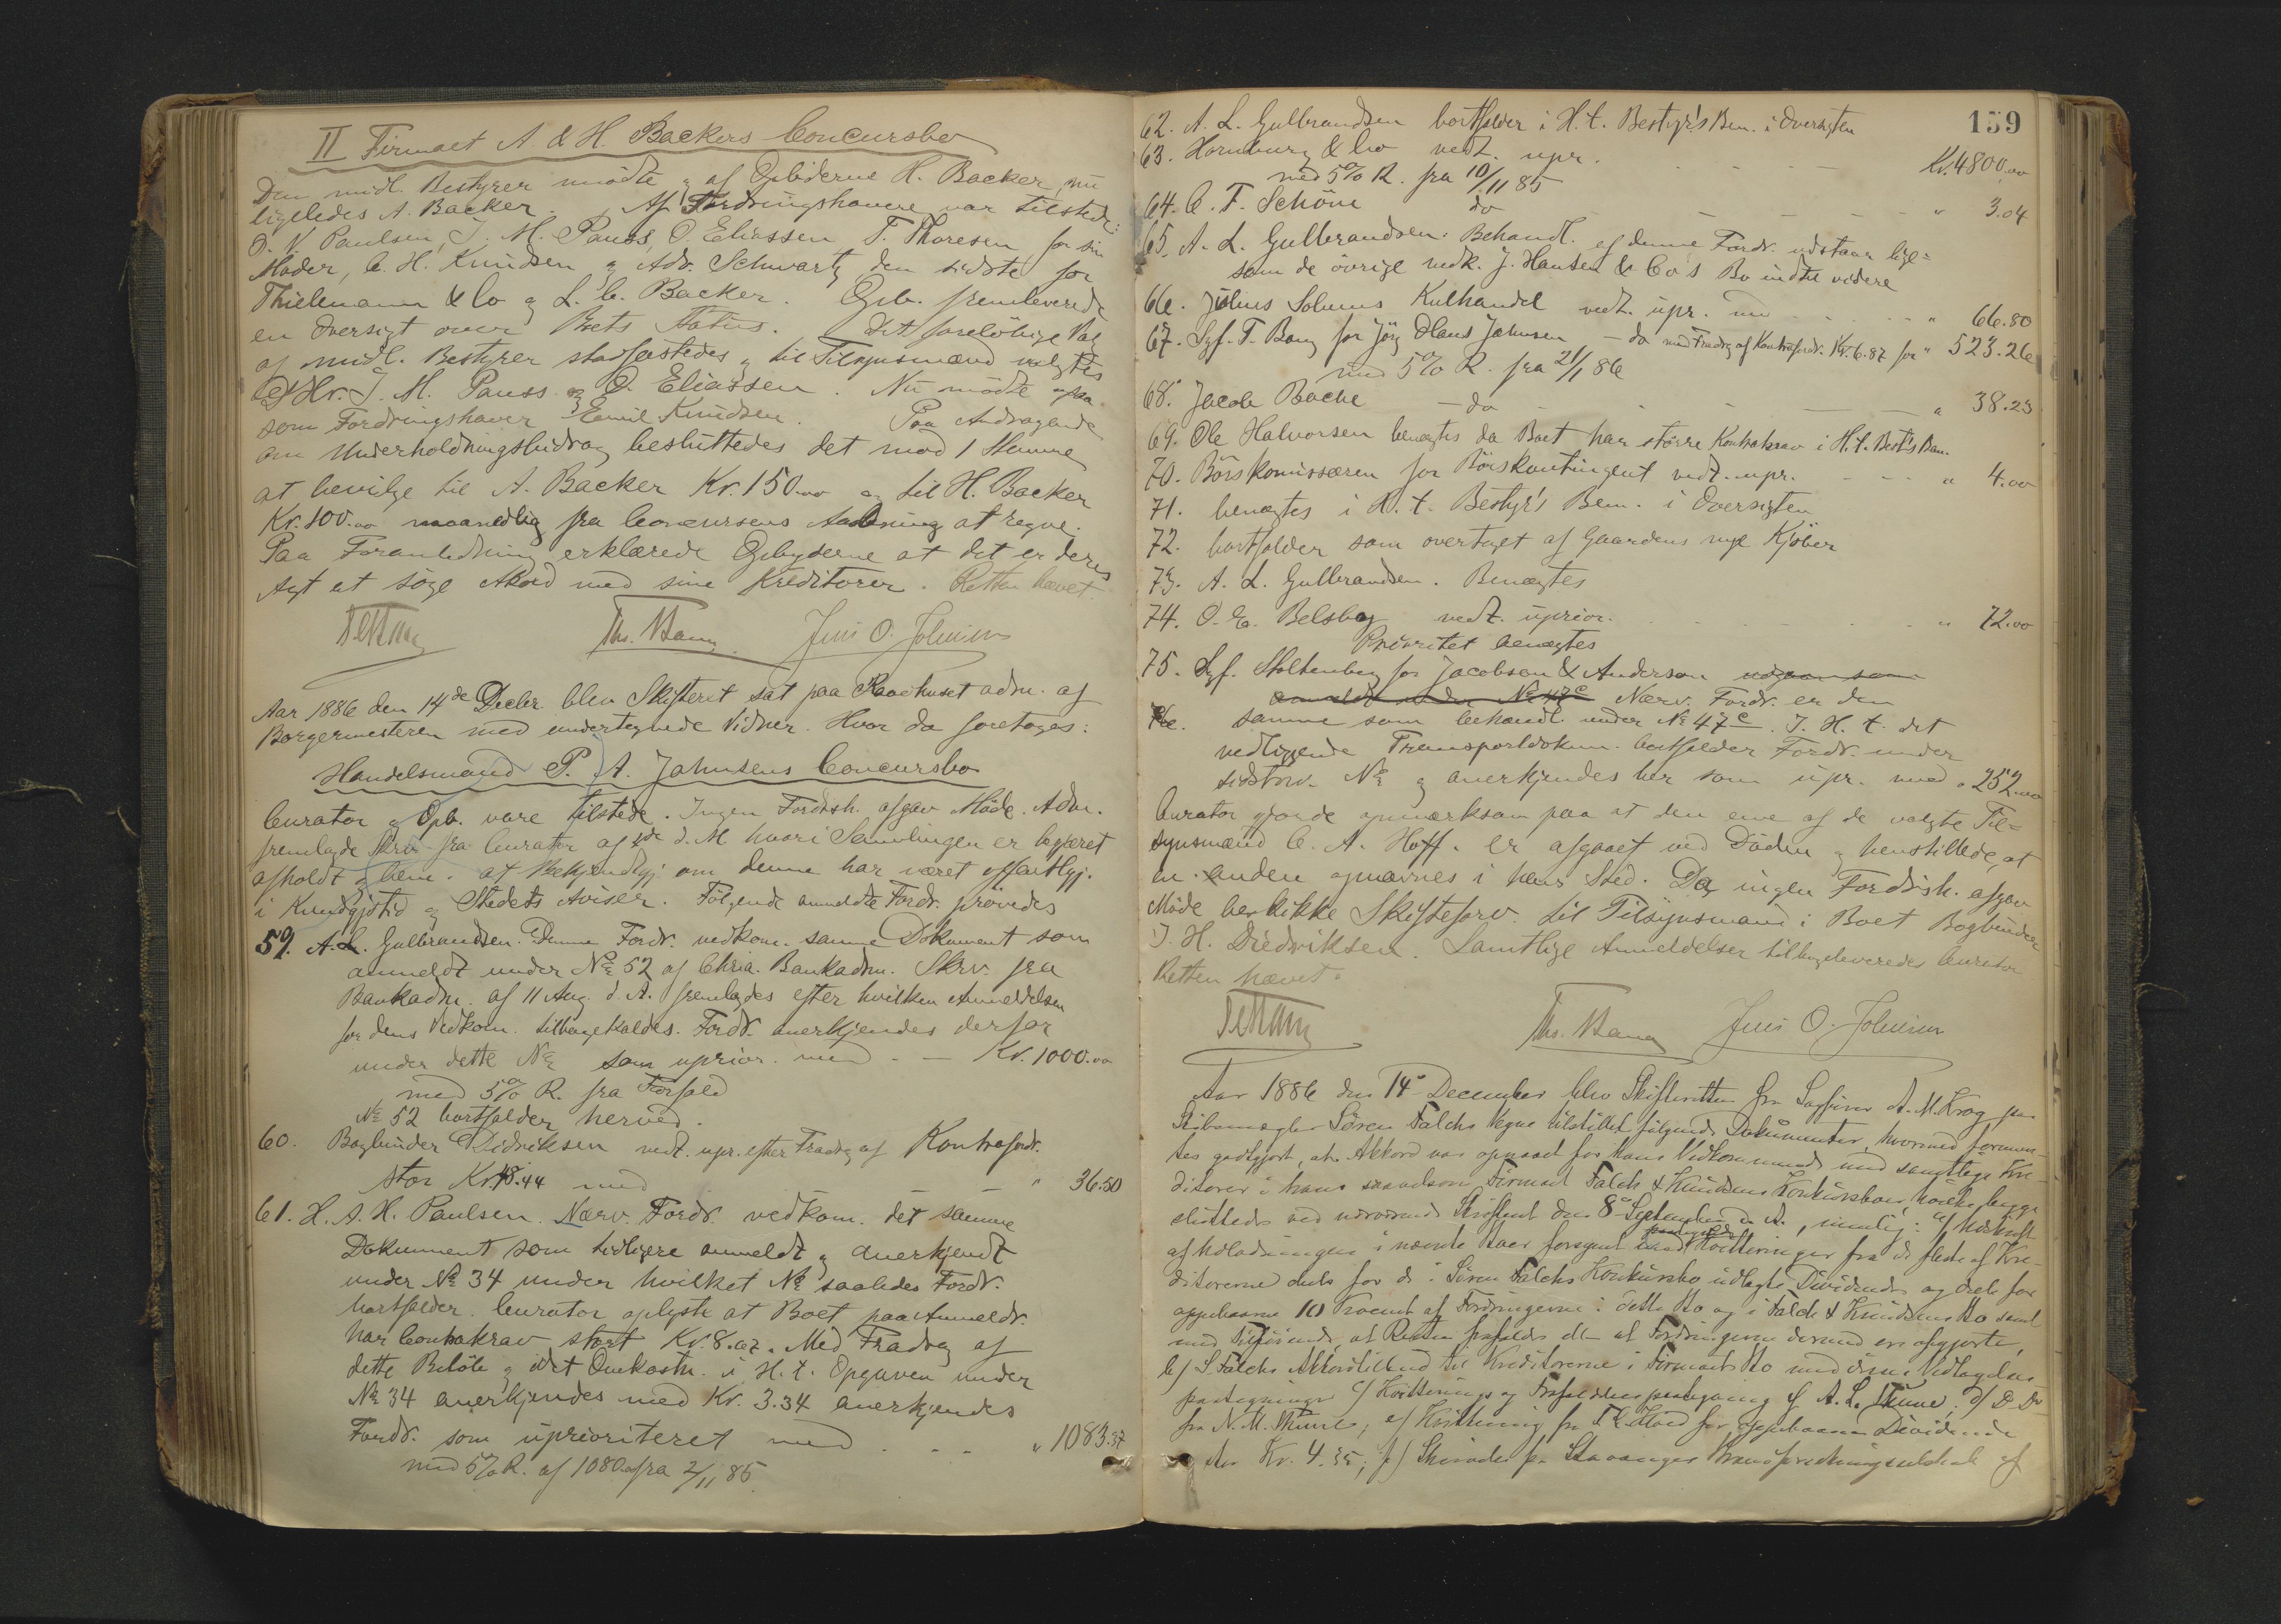 II Firmaet A & H. Backers Concursbo
Den midl. Bestyrer mödte & af Opbyderne H. Backer, nu
ligeledes A. Backer. Af Fordringshavere var tilstede:
O. V. Paulsen, J. M. Pauss, O. Eliassen, T. Thoresen for sin
Moder, C. H. Knudsen & Adv. Schwartz den sidste for
Thielemann & Co & L. C. Backer. Opb. fremleverede
en Oversigt over Boets Status. Det foreløbige Valg
af midl. Bestyrer stadfæstedes & til Tilsynsmænd valgtes
Hr. J. M. Pauss & O. Eliassen. Nu mödte ogsaa
som Fordringshaver Emil Knudsen. Paa Andragende
om Underholdningsbidrag besluttedes det mod 1 Stemme
at bevilge til A. Backer Kr. 150.00 & til H. Backer
Kr. 100.00 maanedlig fra Concursens Aabning at regne.
Paa Foranledning erklærede Opbyderne at det er deres
Agt at söge Akord med sine Kreditorer. Retten hævet.
Ths. Bang Jens O. Johnsen
Aar 1886 den 14de Decbr. blev Skifteret sat paa Raadhuset adm. af
Borgermesteren med undertegnede Vidner. Hvor da foretoges:
Handelsmand P. A. Jahnsens Concursbo
Curator & Opb. vare tilstede. Ingen Fordrsh. afgav Möde. Adm.
fremlagde Skrv. fra Curator af d. M. hvori Samlingen er begjæret
afholdt & bem. at Bekjendtgj. om denne har været offentligj.
i Kundgjötid. & Stedets Aviser. Fölgende anmeldte Fordr. prövedes
59. A. L. Gulbrandsen. Denne Fordr. vedkom. samme Dokument som
anmeldt under No 52 af Chria. Bankadm. Skrv. fra
Bankadm. af 11 Aug. d. A. fremlagdes efter hvilken Anmeldelsen
for dens Vedkom. tilbagekaldes. Fordr. anerkjendes derfor
under dette No som uprior. med - - Kr. 1000.00
med 5% R. fra Forfald
No 52 bortfalder herved.
60. Bogbinder Didriksen vedt. upr. efter Fradrag af Kontrafordr.
stor Kr. 48.44 med - - " 36.50
61. H. A. H. Paulsen. Nærv. Fordr. vedkom. det samme
Dokument som tidligere anmeldt & anerkjendt
under No 34 under hvilket No saaledes Fordr.
bortfalder. Curator oplyste at Boet paa Anmeldr.
har Contrakrav stort Kr. 8.07. Med Fradrag af
dette Belöb & idet Omkostn. i H. t. Opgaven under
No 34 anerkjendes med Kr. 3.34 anerkjendes
Fordr. som uprioriteret med - - - " 1083.37
med 5% R. af 1080.00 fra 2/11 85
159
62. A. L. Gulbrandsen bortfalder i H. t. Bestyr's Bem. i Oversigten
63. Hornburg & Co vedt. upr. - - - Kr. 4800.00
med 5% R. fra 10/11 85
64. C. F. Schöne do - - - " 3.04
65. A. L. Gulbrandsen: Behandl. af denne Fordr. udstaar lige=
som de övrige vedk. J. Hansen & Co's Bo indtil videre
66. Julius Solums Kulhandel vedt. upr. med - - - " 66.80
67. Sgf. T. Bang for Jörg Hans Johnsen - do med Fradrag af Kontrafordr. Kr. 6.87 for " 523.26
med 5% R. fra 21/1 86
68. Jacob Bache - do - - - " 38.23
69. Ole Halvorsen benægtes da Boet har större Kontrakrav i H. t. Best's Bem.
70. Börskomissæren for Börskontingent vedt. upr. - - - " 4.00
71. benægtes i H. t. Bestyr's Bem. i Oversigten
72. bortfalder som overtaget af Gaardens nye Kjöber
73. A. L. Gulbrandsen. Benægtes
74. O. E. Belsby vedt. uprior. - - - " 72.00
Prioritet benægtes
75. Sgf. Stoltenberg for Jacobsen & Anderson udgaar som
anmeldt under No 47c Nærv. Fordr. er den
samme som behandl. under No 47c. I H. t. det
vedliggende Transportdokum. bortfalder Fordr. under
sidstnv. No & anerkjendes her som upr. med " 252.00
Curator gjorde opmærksom paa at den ene af de valgte Til=
synsmænd C. A. Hoff. er afgaaet ved Döden & henstillede, at
en anden opnævnes i hans Sted. Da ingen Fordrsh. afgav
Möde beskikke Skifteforv. til Tilsynsmand i Boet Bogbinder
J. H. Diedriksen. Samtlige Anmeldelser tilbageleveredes Curator
Retten hævet.
Ths. Bang Jens O. Johnsen
Aar 1886 den 14de December blev Skifteretten fra Sagförer A. M. Krog paa
Skibsmægler Sören Falchs Vegne tilstillet fölgende Dokumenter, hvormed formen-
tes godtgjort, at Akkord var opnaaet for hans Vedkommende med samtlige Kre-
ditorer i hans saavelsom Firmaet Falch & Knudsens Konkursboer, hvilke begge
sluttedes ved nærværende Skifteret den 8de September d. A., nemlig: a)
af Udlodningen i nævnte Boer forsynet med Kvitteringer fra de fleste af Kre-
ditorerne dels for de i Sören Falchs Konkursbo udlagte Dividende og dels for
oppebaarne 10 Procent af Fordringerne i dette Bo og i Falch & Knudsens Bo samt
med Tilföiende, at Resten frafaldes eller at Fordringerne dermed ere afgjorte,
b) S. Falchs Akkordtilbud til Kreditorerne i Firmaets Bo med disses Vedtagelses
paategninger c) Kvitterings og Frafaldelsespaategning af A. L. Thune, d) Do Do
fra N. M. Thune, e) Kvittering fra for oppebaaren Dividende
stor Kr. 4.35, f) Skrivelse fra Stavanger Brandforsikringsselskab af